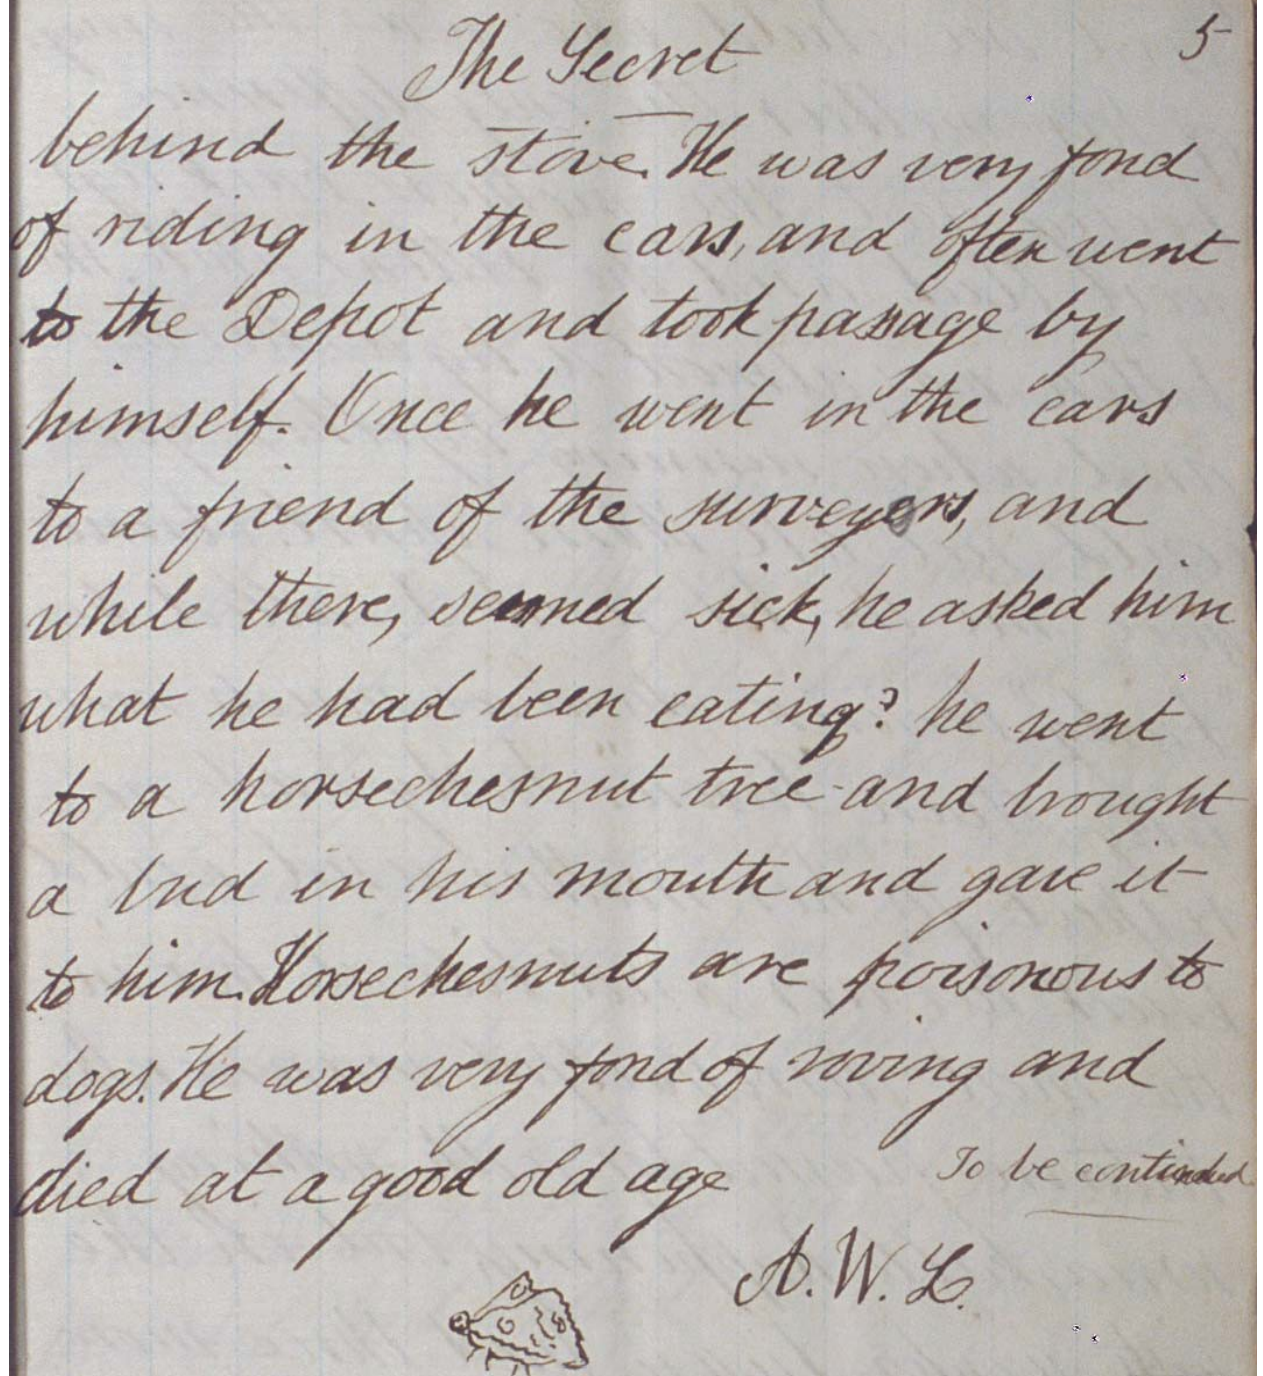 The Secret 5
behind the stove. He was very fond
of riding in the cars, and often went
to the Depot and took passage by
himself. Once he went in the cars
to a friend of the surveyers, and
while there, seemed sick, he asked him
what he had been eating? he went
to a horsechesnut tree and brought
a bud in his mouth and gave it
to him. Horsechesnuts are poisonous to
dogs. He was very fond of roving and
died at a good old age
To be continued
A. W. L.